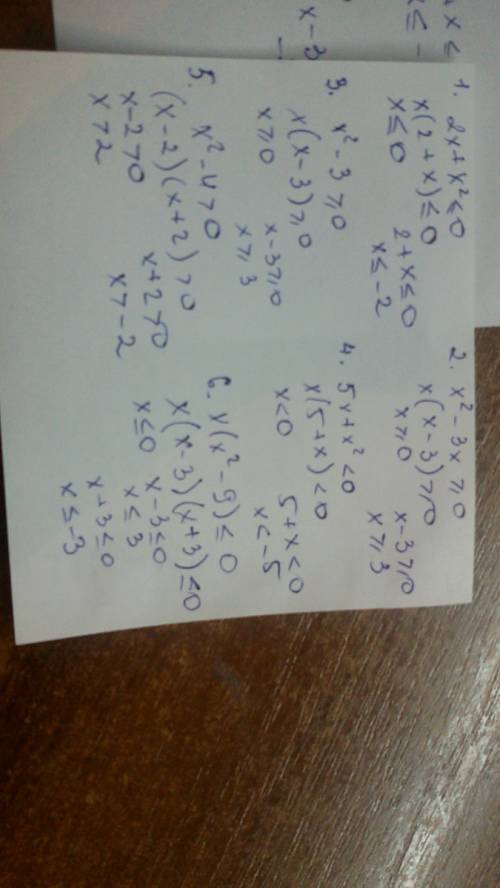 1. 2x+x²≤0
x(2+x)≤0
x≤0 2+x≤0
x≤-2
2. x²-3x⩾0
x(x-3)⩾0
x⩾0 x-3⩾0
x⩾3
3. x²-3⩾0
x(x-3)⩾0
x⩾0 x-3⩾0
x⩾3
4. 5x+x²<0
x(5+x)<0
x<0 5+x<0
x<-5
5. x²-4>0
(x-2)(x+2)>0
x-2>0 x+2>0
x>2 x>-2
6. x(x²-9)≤0
x(x-3)(x+3)≤0
x≤0 x-3≤0
x≤3
x+3≤0
x≤-3
+x≤
x≤-
x-3